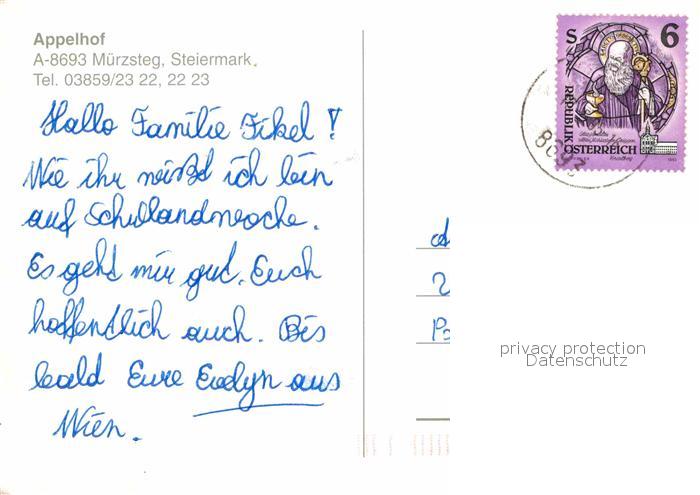 Appelhof
A-8693 Mürzsteg, Steiermark.
Tel. 03859/23 22, 22 23
Hallo Familie Fikel !
Wie ihr weißd ich bin
auf Schullandwoche.
Es geht mir gut. Euch
hoffendlich auch. Bis
bald Eure Evelyn aus
Wien.
S 6
REPUBLIK
ÖSTERREICH
privacy protection
Datenschutz